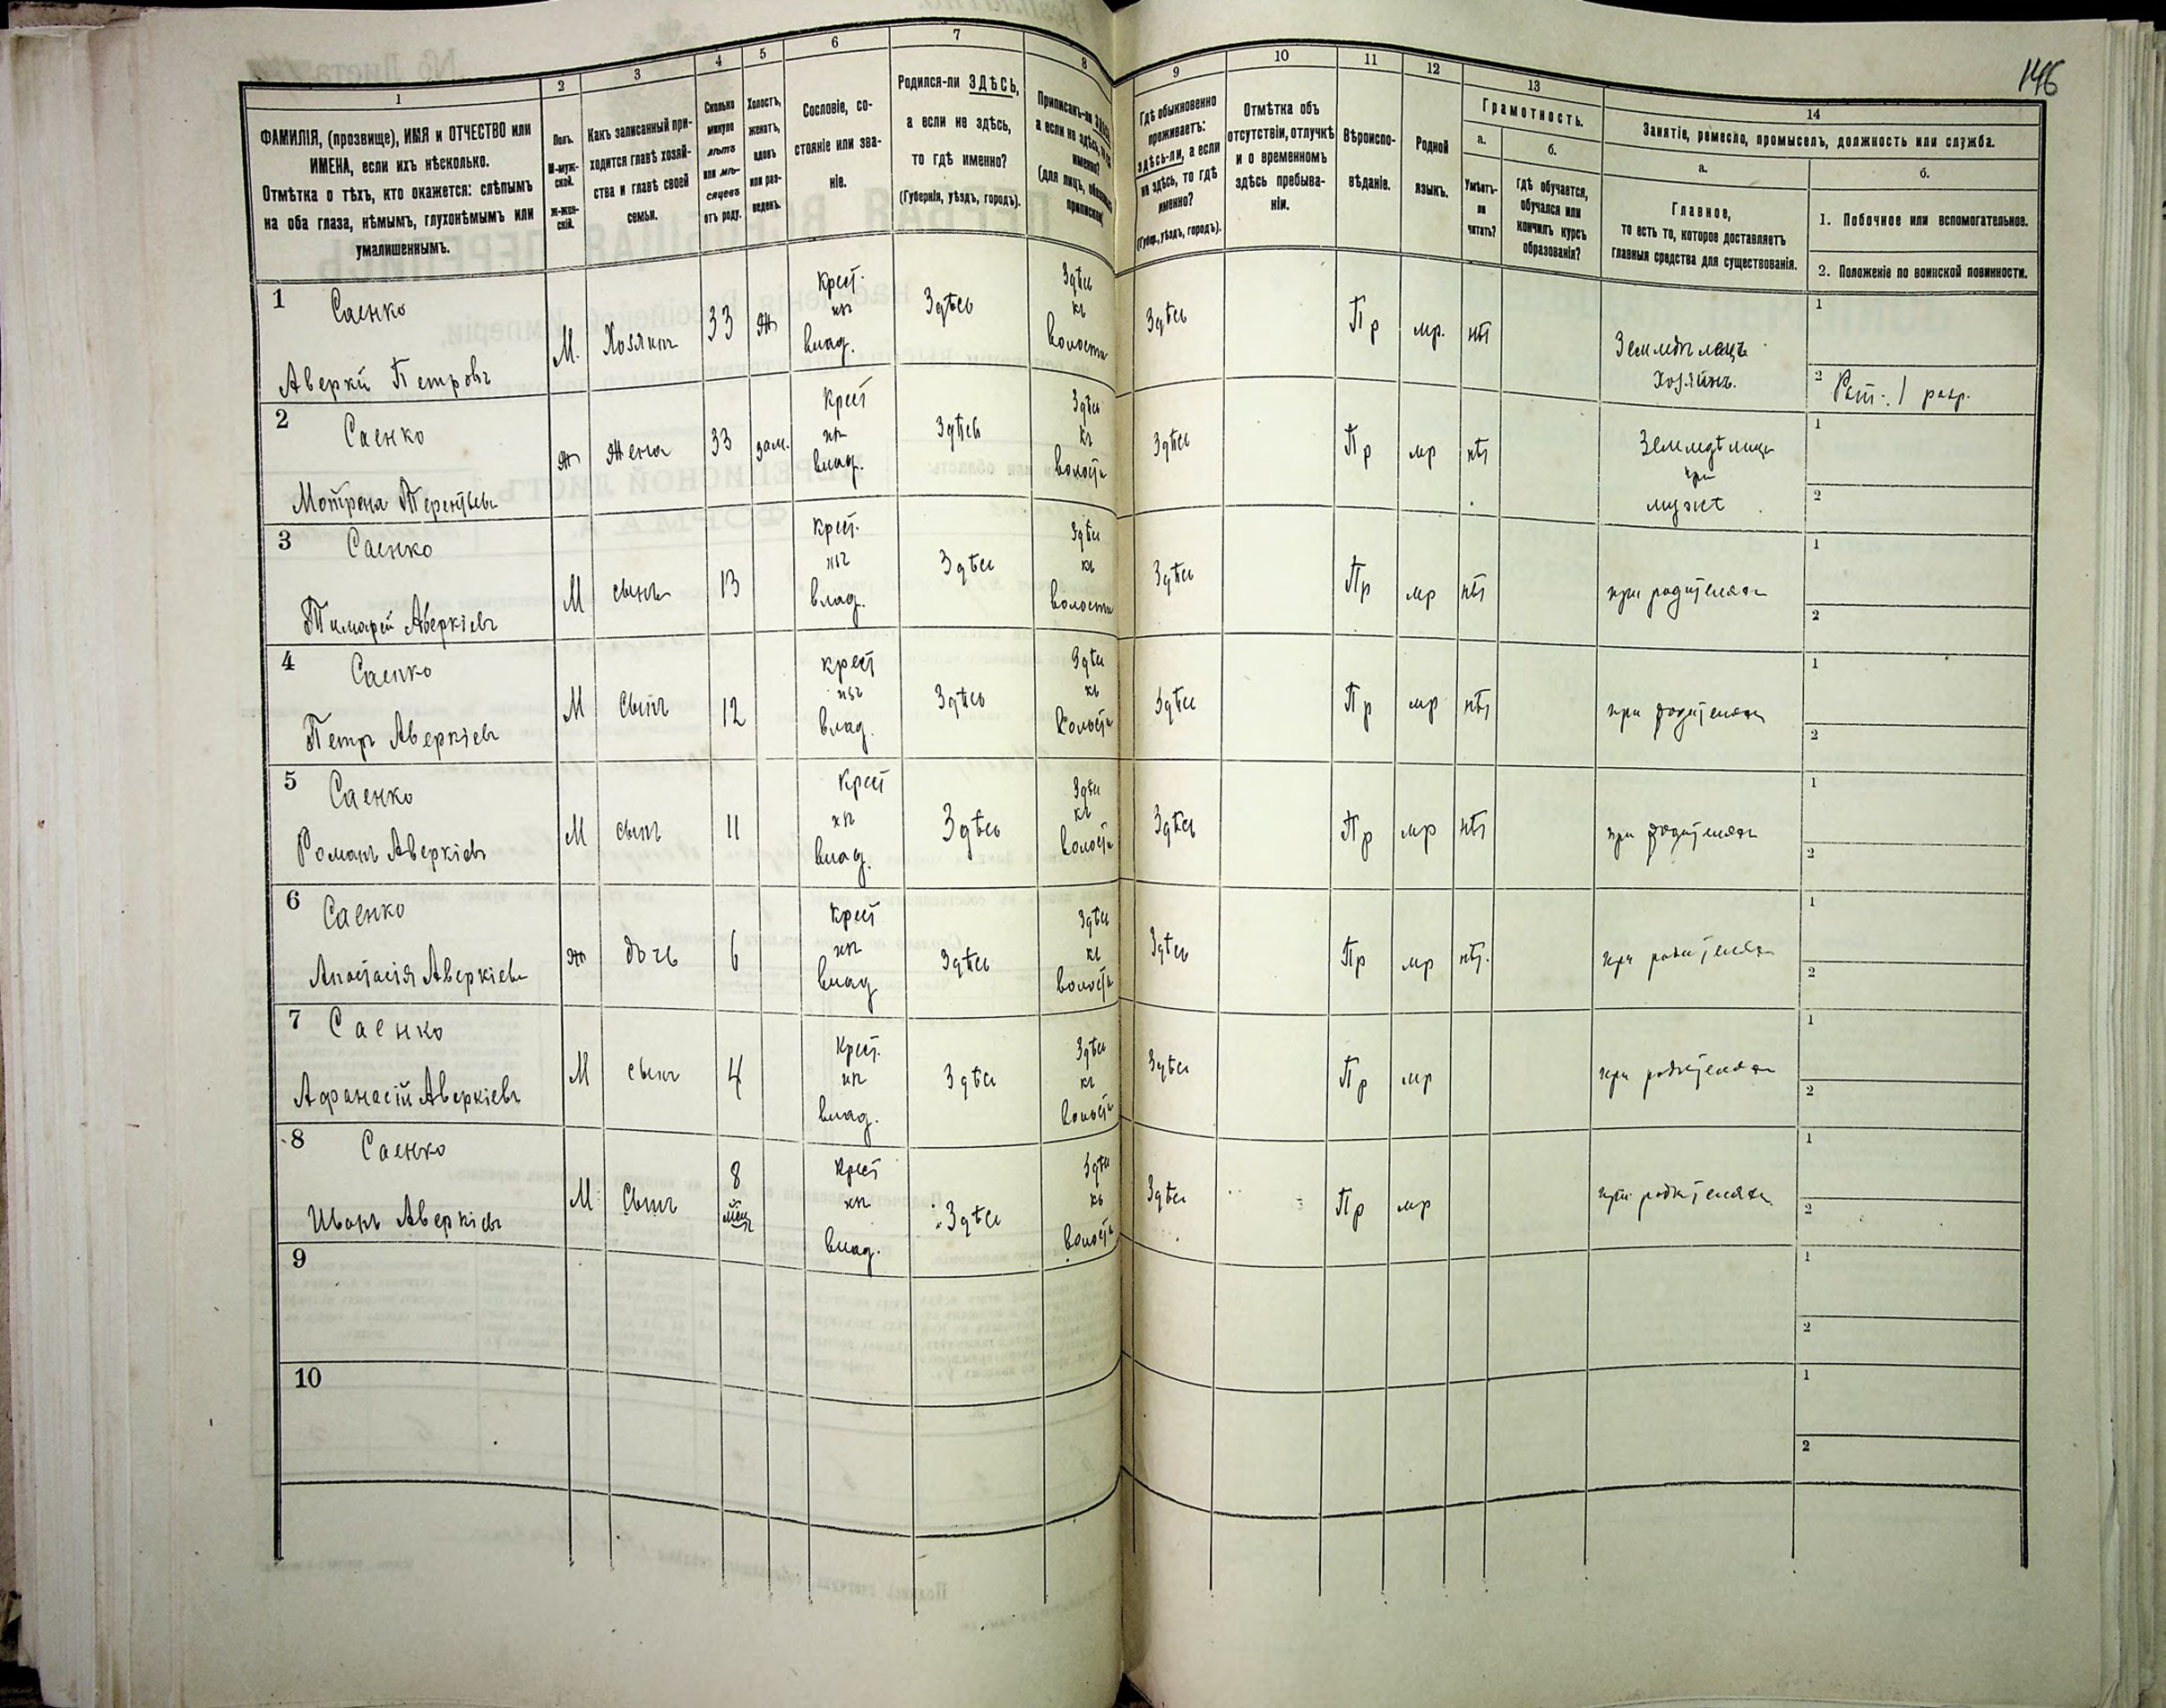 146
1
2
3
4
5
6
7
8
9
10
11
12
13
14
ФАМИЛІЯ, (прозвище), ИМЯ и ОТЧЕСТВО или
ИМЕНА, если ихъ нѣсколько.
Отмѣтка о тѣхъ, кто окажется: слѣпымъ
на оба глаза, нѣмымъ, глухонѣмымъ или
умалишеннымъ.
Полъ.
М-муж-
ской.
Ж-жен-
скій.
Какъ записанный при-
ходится главѣ хозяй-
ства и главѣ своей
семьи.
Сколько
минуло
лѣтъ
или мѣ-
сяцевъ
отъ роду.
Холостъ,
женатъ,
вдовъ
или раз-
веденъ.
Сословіе, со-
стояніе или зва-
ніе.
Родился-ли ЗДѢСЬ,
а если не здѣсь,
то гдѣ именно?
(Губернія, уѣздъ, городъ).
Приписанъ-ли ЗДѢСЬ,
а если не здѣсь, то гдѣ
именно?
(для лицъ, обязанныхъ
припиской)
Гдѣ обыкновенно
проживаетъ:
здѣсь-ли, а если
не здѣсь, то гдѣ
именно?
(Губер., уѣздъ, городъ).
Отмѣтка объ
отсутствіи, отлучкѣ
и о временномъ
здѣсь пребыва-
ніи.
Вѣроиспо-
вѣданіе.
Родной
языкъ.
Грамотность.
а.
б.
Умѣетъ-
ли
читать?
гдѣ обучается,
обучался или
кончилъ курсъ
образованія?
Занятіе, ремесло, промыселъ, должность или служба.
а.
б.
Главное,
то есть то, которое доставляетъ
главныя средства для существованія.
1. Побочное или вспомогательное.
2. Положеніе по воинской повинности.
1 Саенко
Аверкій Петровъ
М. Хозяинъ 33 Ж
Крест.
изъ
влад.
Здѣсь
Здѣсь
къ
волости
Здѣсь
Пр мр. нѣт
Земледѣлецъ
Хозяинъ.
1
2 Рат. 1 разр.
2 Саенко
Мотрена Терентьев
Ж Жена 33 зам.
Крест
изъ
влад.
Здѣсь
Здѣсь
къ
волости
Здѣсь
Пр мр нѣт
при
мужѣ
1
2
3 Саенко
Аверкіевъ
М сынъ 13
Крест.
изъ
влад.
Здѣсь
Здѣсь
къ
волости
Здѣсь
Пр мр нѣт
при родителях
1
2
4 Саенко
Петръ Аверкіевъ
М Сынъ 12
крест
изъ
влад.
Здѣсь
Здѣсь
къ
волости
Здѣсь
Пр мр нѣт
при родителях
1
2
5 Саенко
Романъ Аверкіевъ
М сынъ 11
Крест
изъ
влад.
Здѣсь
Здѣсь
къ
волости
Здѣсь
Пр мр нѣт
при родителях
1
2
6 Саенко
Анастасія Аверкіев
Ж дочь 6
Крест
изъ
влад
Здѣсь
Здѣсь
къ
волости
Здѣсь
Пр мр нѣт.
при родителях
1
2
7 Саенко
Афанасій Аверкіевъ
М сынъ 4
Крест.
изъ
влад.
Здѣсь
Здѣсь
къ
волости
Здѣсь
Пр мр
при родителях
1
2
8 Саенко
Иванъ Аверкіевъ
М Сынъ 8
Крест
изъ
влад.
Здѣсь
Здѣсь
къ
волости
Здѣсь
Пр мр
при родителях
1
2
9
1
2
10
1
2